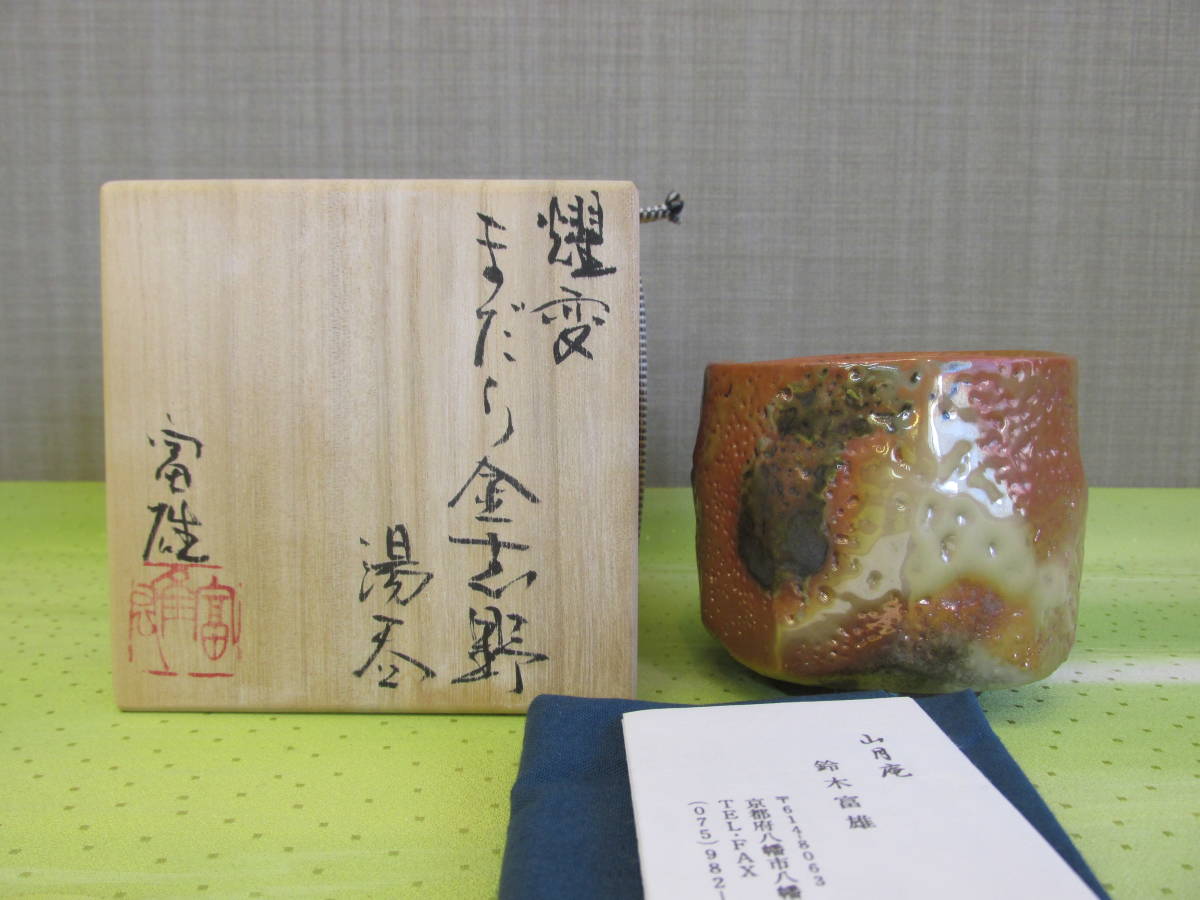 燿変
まだら金志野
湯呑
富雄
山月庵
鈴木富雄
〒614-8063
京都府八幡市八幡
TEL・FAX
(075)982-